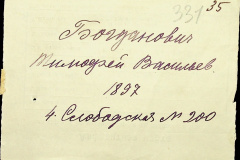 331 35
Богданович
Тимофей Васильев.
1897
4. Слободская № 200